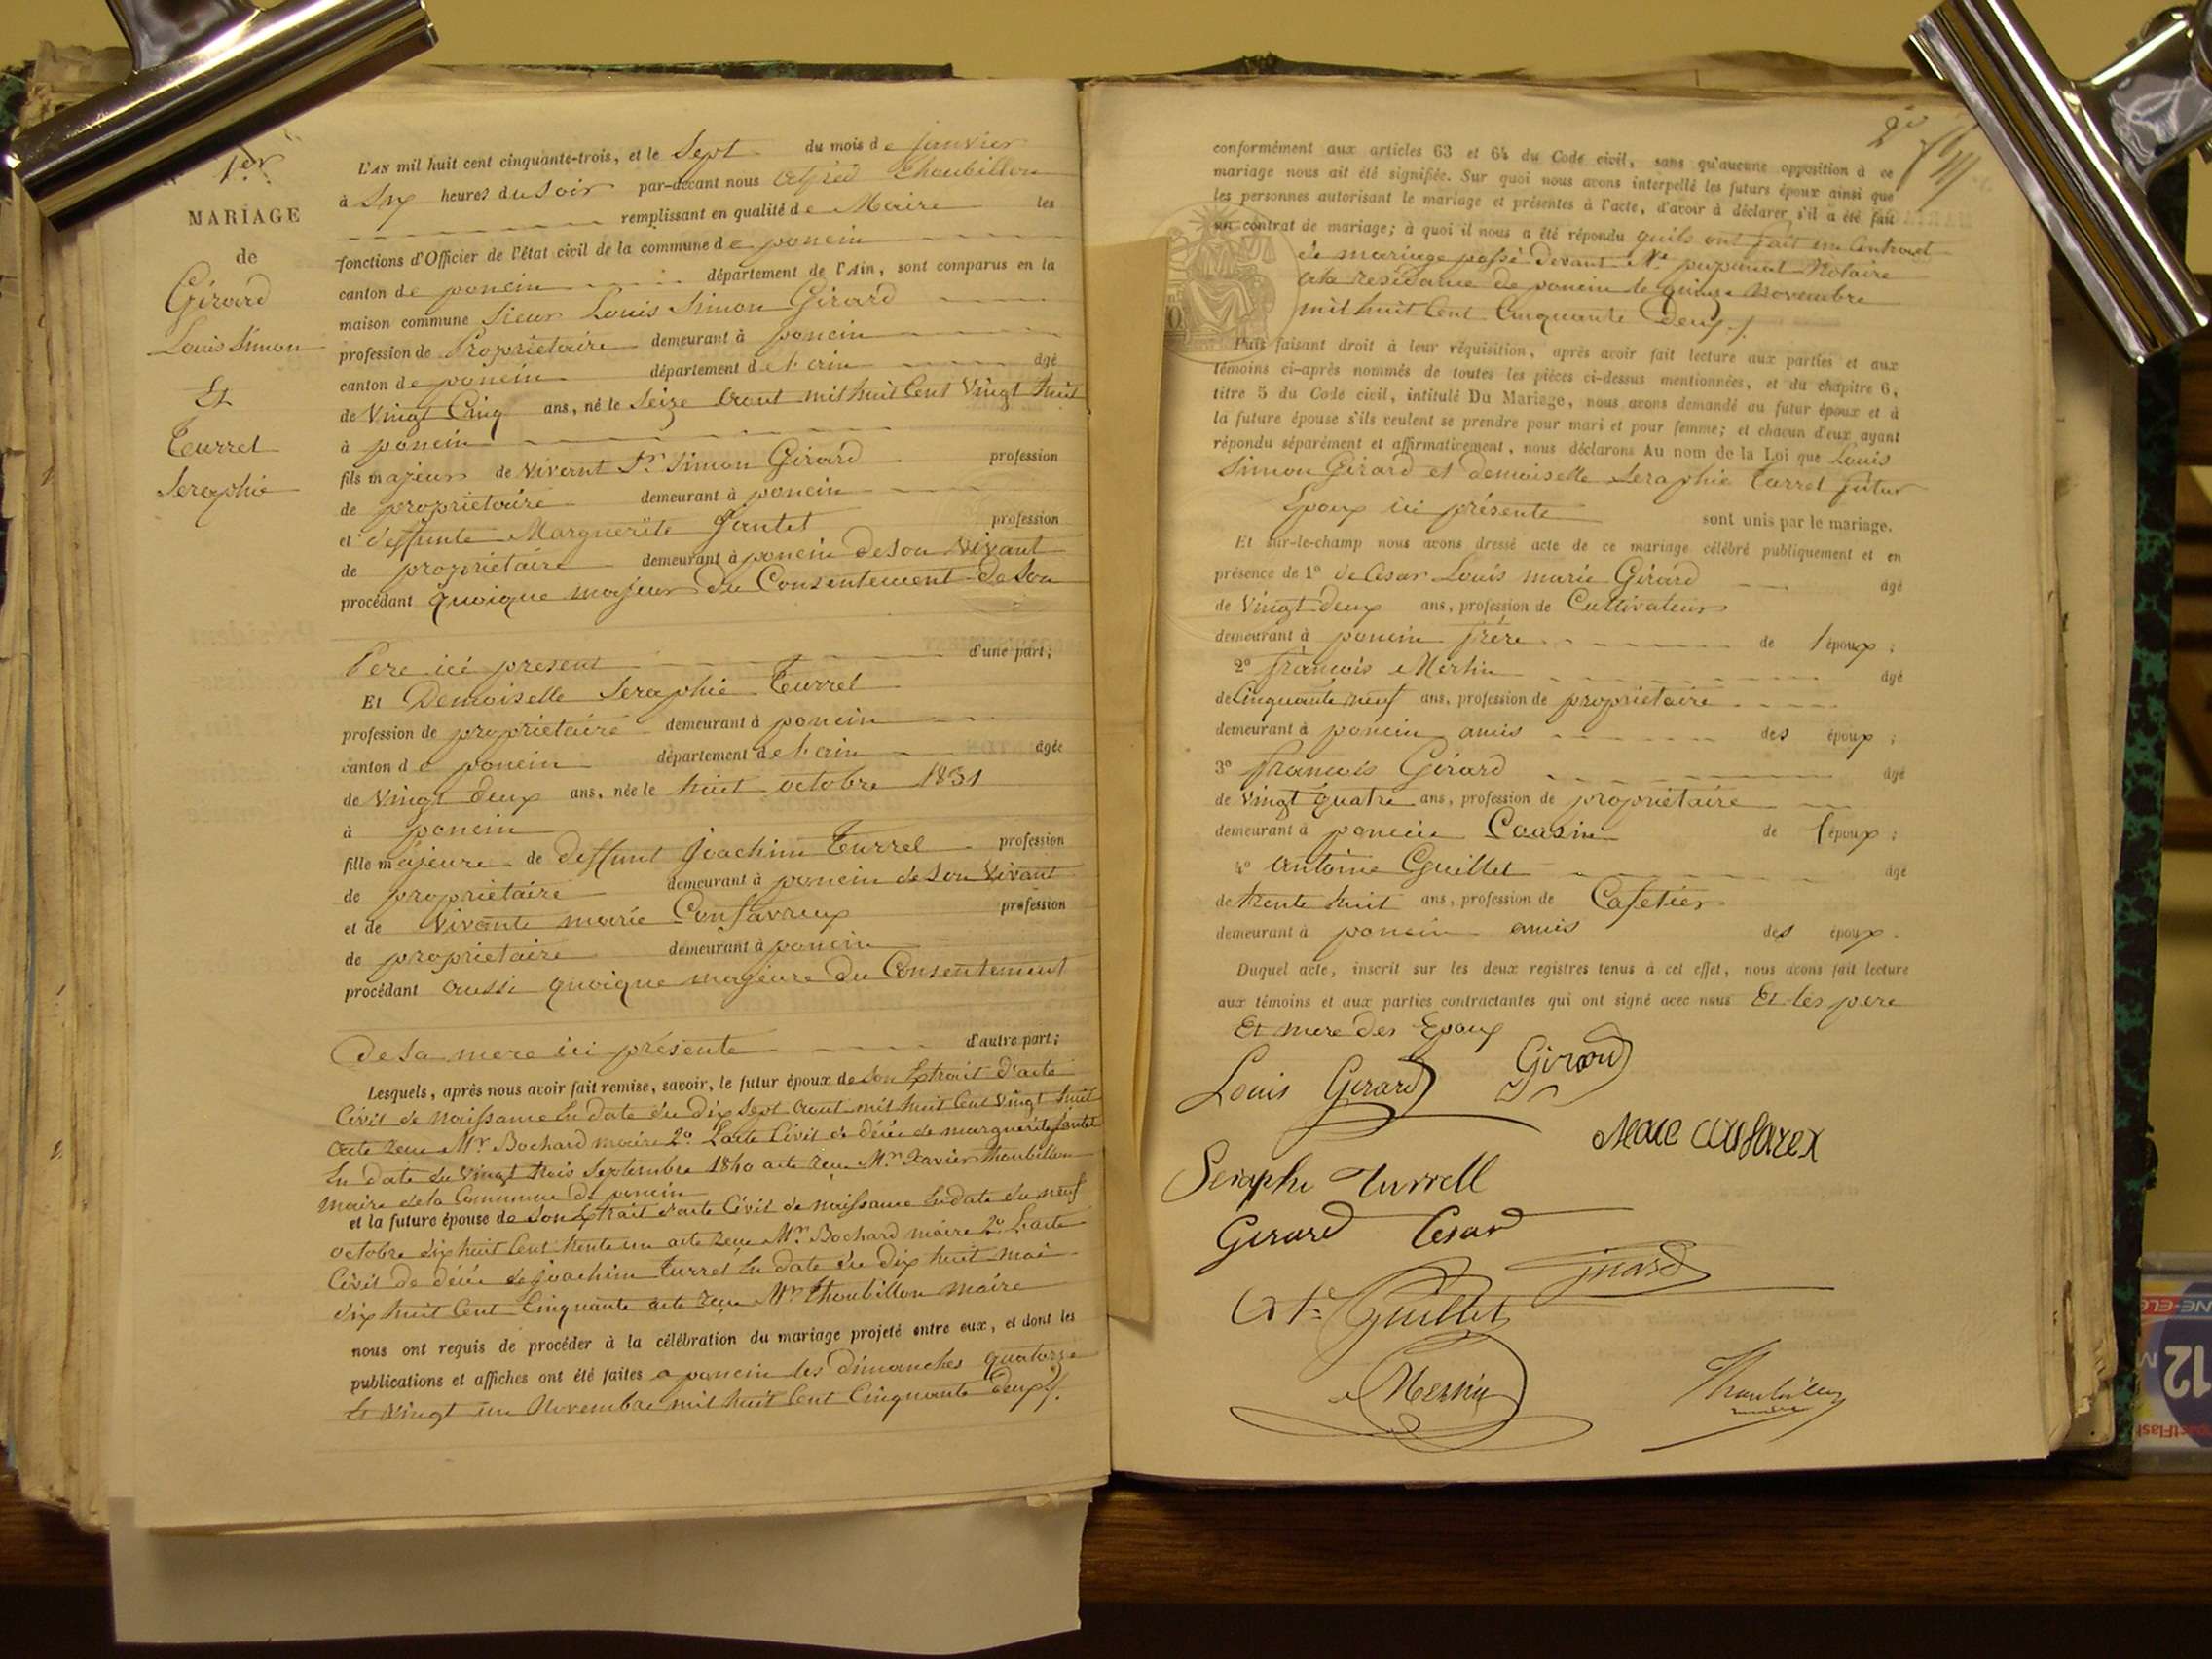 1er
MARIAGE
de
Girard
Louis Simon
Et
Turrel
Seraphie
L'AN mil huit cent cinquante-trois, et le Sept du mois de janvier
à Six heures du Soir par-devant nous Alfred Thoubillon
remplissant en qualité de Maire les
fonctions d'Officier de l'état civil de la commune de poncin
canton de poncin département de l'Ain, sont comparus en la
maison commune Sieur Louis Simon Girard
profession de Propriétaire demeurant à poncin
canton de poncin département de l'ain âgé
de Vingt Cinq ans, né le Seize Aout mil huit Cent Vingt huit
à poncin
fils majeur de Vivant Sr Simon Girard profession
de propriétaire demeurant à poncin
et deffunte Marguerite Jantet profession
de propriétaire demeurant à poncin de son Vivant
procédant quoique majeur du Consentement de Son
Pere ici présent d'une part;
Et Demoiselle Seraphie Turrel
profession de propriétaire demeurant à poncin
canton de poncin département de l'ain âgée
de Vingt deux ans, née le huit octobre 1831
à poncin
fille majeure de deffunt Joachim Turrel profession
de propriétaire demeurant à poncin de son Vivant
et de Vivante marie Confavreux profession
de propriétaire demeurant à poncin
procédant aussi quoique majeure du Consentement
De sa mere ici présente d'autre part;
Lesquels, après nous avoir fait remise, savoir, le futur époux de son Extrait d'acte
Civil de naissance En date du dix sept Aout mil huit Cent Vingt huit
acte reçu Mr Bochard maire 2o L'acte Civil de décès de marguerite Jantet
En date du Vingt trois Septembre 1840 acte reçu Mr Xavier Thoubillon
maire de la Commune de poncin
et la future épouse de son Extrait d'acte Civil de naissance En date du neuf
octobre dix huit Cent trente un acte reçu Mr Bochard maire 2o L'acte
Civil de décès de joachim Turrel En date du dix huit mai
dix huit Cent Cinquante acte reçu Mr Thoubillon maire
nous ont requis de procéder à la célébration du mariage projeté entre eux, et dont les
publications et affiches ont été faites a poncin les dimanches quatorze
Et Vingt un Novembre mil huit Cent Cinquante deux
conformément aux articles 63 et 64 du Code civil, sans qu'aucune opposition à ce
mariage nous ait été signifiée. Sur quoi nous avons interpellé les futurs époux ainsi que
les personnes autorisant le mariage et présentes à l'acte, d'avoir à déclarer s'il a été fait
un contrat de mariage; à quoi il nous a été répondu quils ont fait un Contrat
de mariage passé devant Me Notaire
a la résidance de poncin le quinze Novembre
mil huit Cent Cinquante Deux
Puis faisant droit à leur réquisition, après avoir fait lecture aux parties et aux
témoins ci-après nommés de toutes les pièces ci-dessus mentionnées, et du chapitre 6,
titre 5 du Code civil, intitulé Du Mariage, nous avons demandé au futur époux et à
la future épouse s'ils veulent se prendre pour mari et pour femme; et chacun d'eux ayant
répondu séparément et affirmativement, nous déclarons Au nom de la Loi que Louis
Simon Girard et demoiselle Seraphie Turrel futur
Epoux ici présente sont unis par le mariage.
Et sur-le-champ nous avons dressé acte de ce mariage célébré publiquement et en
présence de 1o de Cesar Louis marie Girard âgé
de Vingt deux ans, profession de Cultivateur
demeurant à poncin frère de l'époux;
2o françois Merlin âgé
de Cinquante neuf ans, profession de propriétaire
demeurant à poncin amis des époux;
3o françois Girard âgé
de Vingt quatre ans, profession de propriétaire
demeurant à poncin Cousin de l'époux;
4o Antoine Guillet âgé
de trente huit ans, profession de Cafetier
demeurant à poncin amis des époux.
Duquel acte, inscrit sur les deux registres tenus à cet effet, nous avons fait lecture
aux témoins et aux parties contractantes qui ont signé avec nous Et les pere
Et mere des Epoux
Louis Girard Girard
Seraphi Turrell
Girard Cesar
Guillet
12